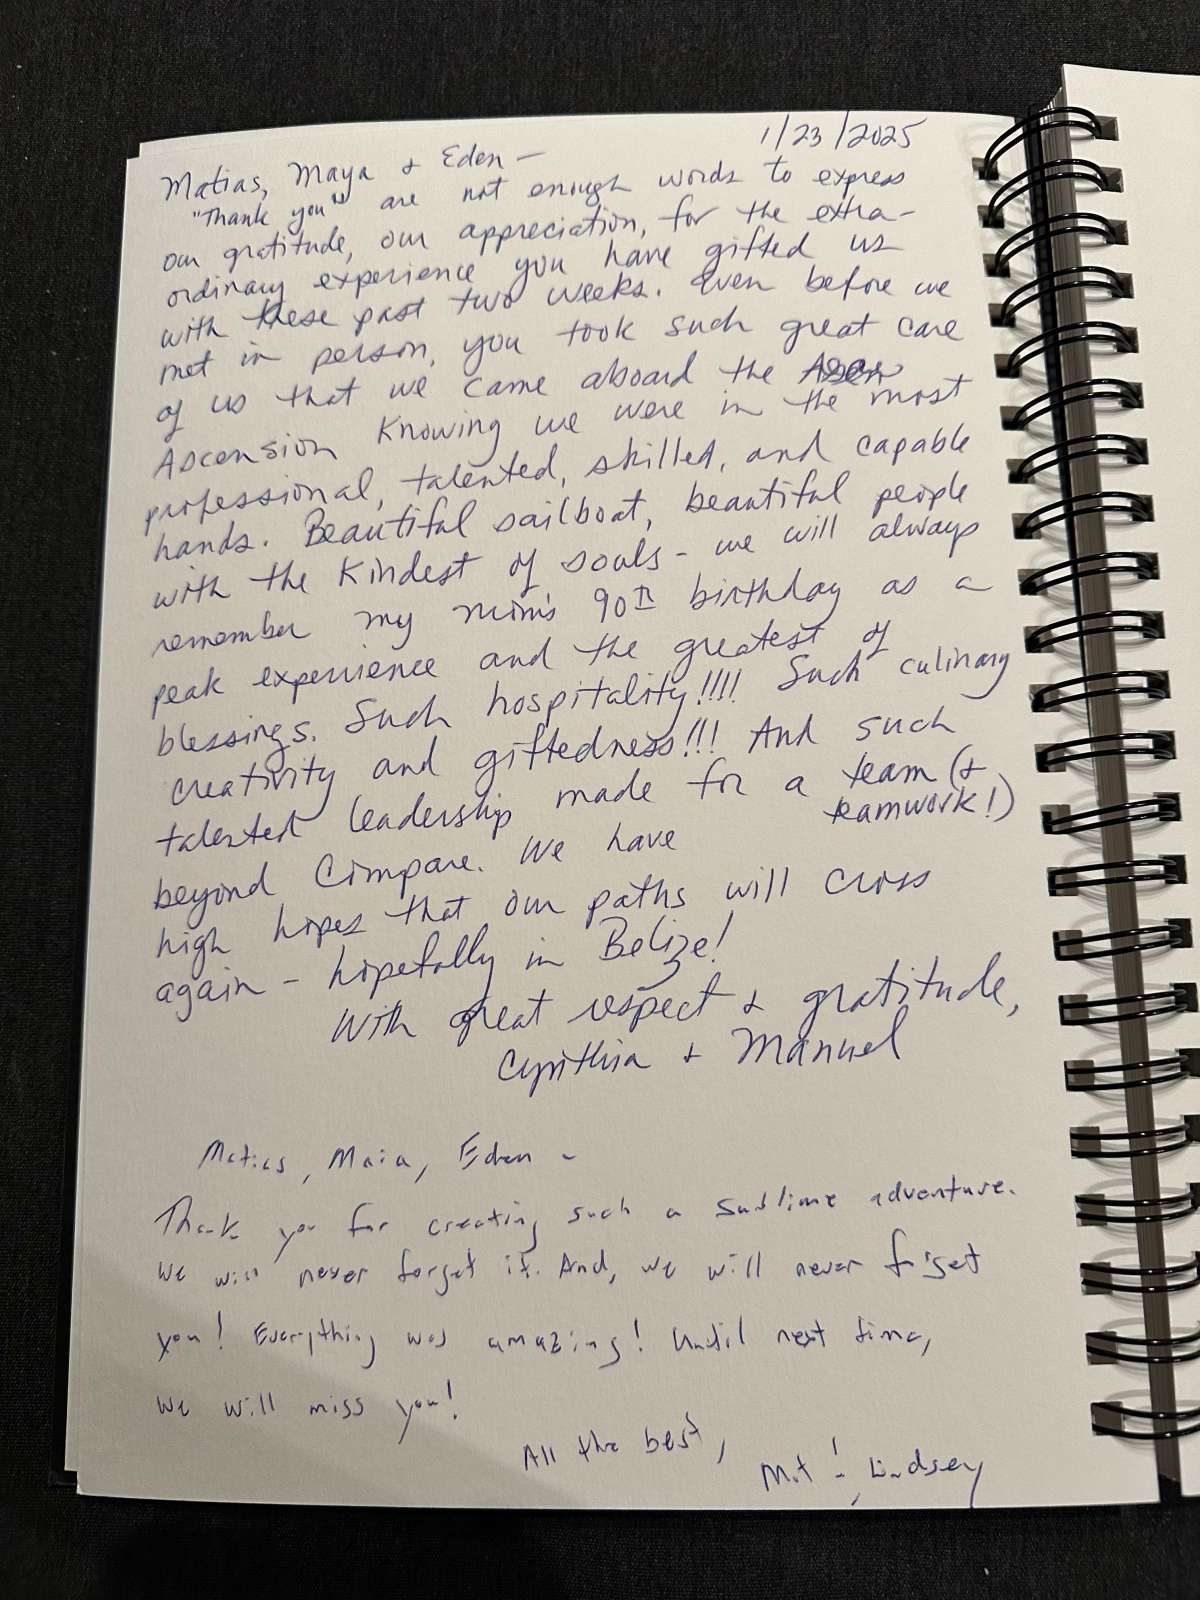 1/23/2025
Matias, Maya & Eden —
"Thank you" are not enough words to express
our gratitude, our appreciation, for the extra-
ordinary experience you have gifted us
with these past two weeks. Even before we
met in person, you took such great care
of us that we came aboard the
Ascension knowing we were in the most
professional, talented, skilled, and capable
hands. Beautiful sailboat, beautiful people
with the kindest of souls - we will always
remember my mom's 90th birthday as a
peak experience and the greatest of
blessings. Such hospitality!!!! Such culinary
creativity and giftedness!!! And such
talented leadership made for a team (&
teamwork!)
beyond compare. We have
high hopes that our paths will cross
again - hopefully in Belize!
With great respect & gratitude,
Cynthia & Manuel
Matias, Maia, Eden -
Thank you for creating such a sublime adventure.
We will never forget it. And, we will never forget
you! Everything was amazing! Until next time,
we will miss you!
All the best,
Lindsey